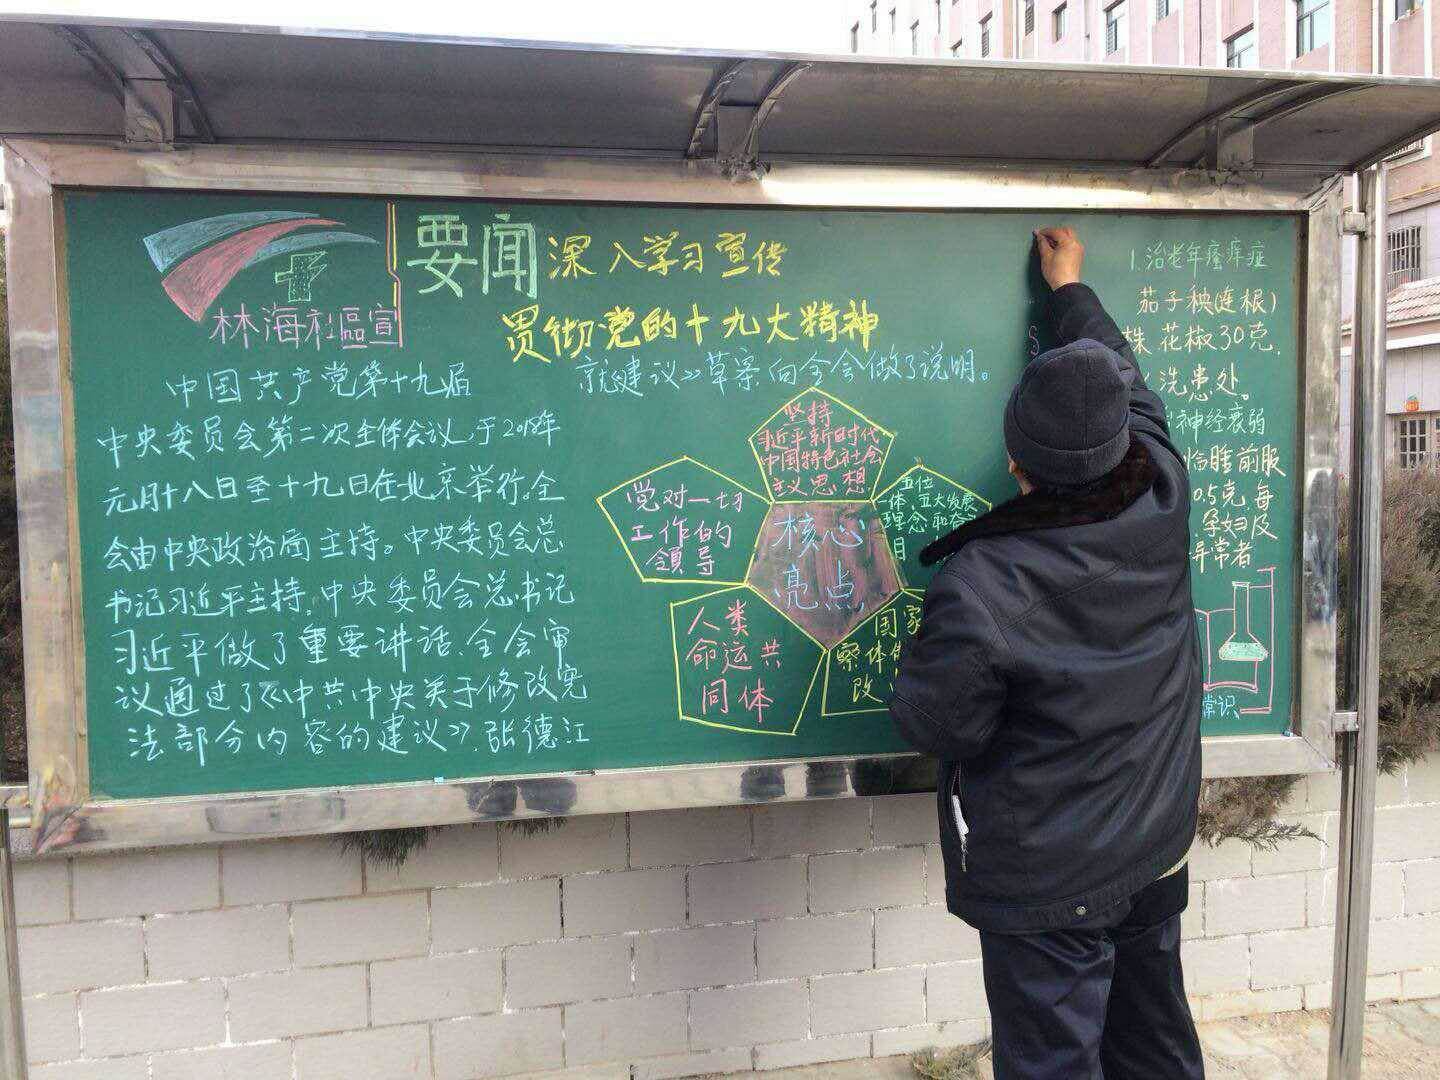 林海社區宣
要闻
深入学习宣传
贯彻党的十九大精神
中国共产党第十九届
中央委员会第二次全体会议,于2018年
元月十八日至十九日在北京举行。全
会由中央政治局主持。中央委员会总
书记习近平主持,中央委员会总书记
习近平做了重要讲话、全会审
议通过了《中共中央关于修改宪
法部分内容的建议》,张德江
就建议》草案向全会做了说明。
坚持
习近平新时代
中国特色社会
主义思想
党对一切
工作的
领导
核心
亮点
五位
一体、五大发展
理念和奋
目
人类
命运共
同体
国家
察体
改
1.治老年瘙痒症
茄子秧(连根)
株花椒30克,
洗患处。
神经衰弱
临睡前服
0.5克,每
孕妇及
异常者
常识